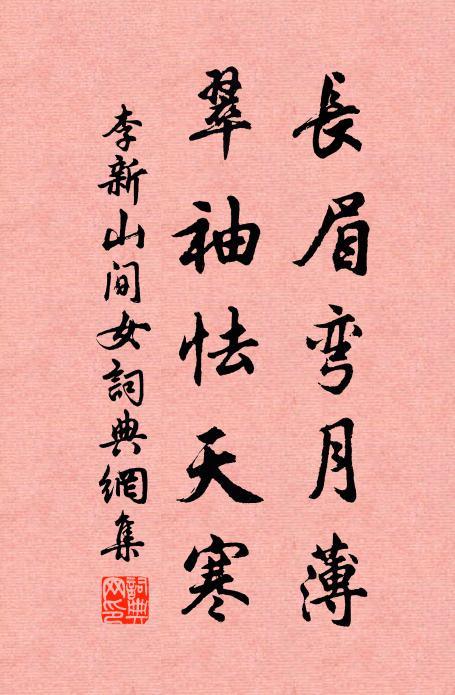 長眉弯月薄
翠袖怯天寒
李新山间女詞典網集
詞典
网印